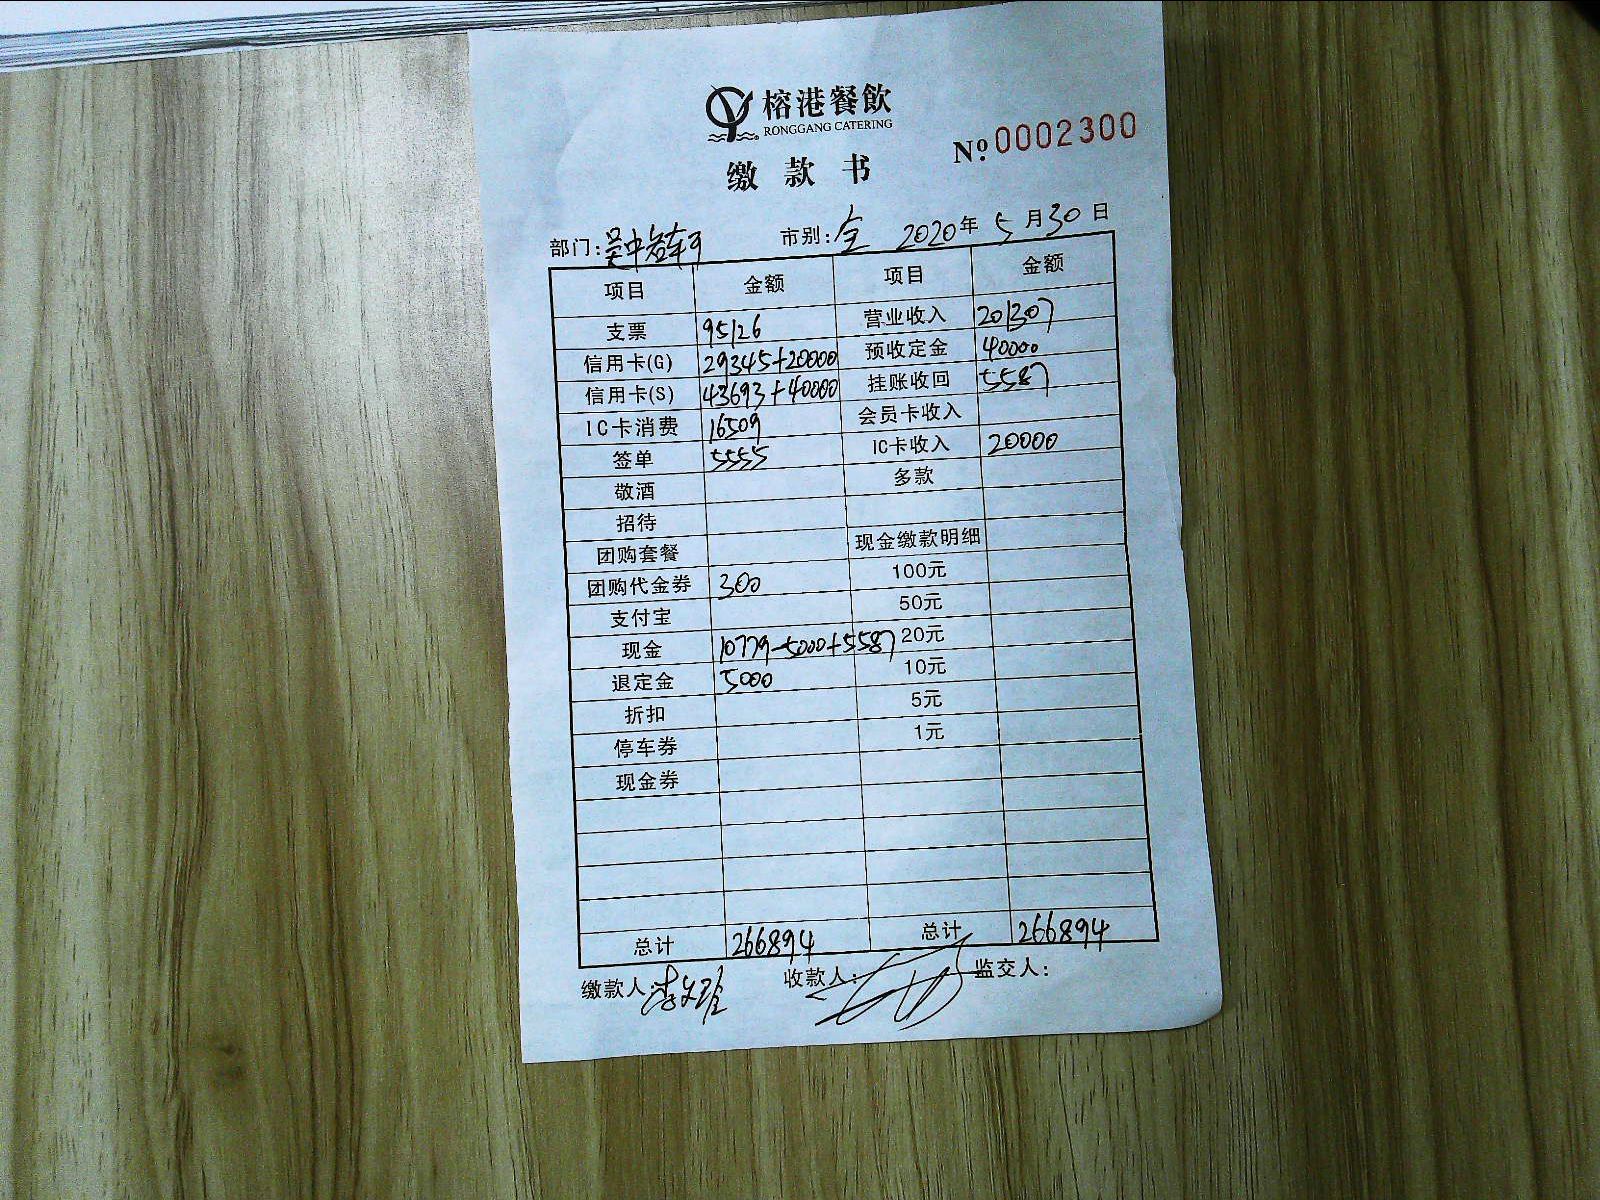 榕港餐飲
RONGGANG CATERING
№:0002300
缴款书
部门: 市别:全 2020年5月30日
项目 金额 项目 金额
支票 95126 营业收入 201307
信用卡(G) 29345+20000 预收定金 40000
信用卡(S) 43693+40000 挂账收回 5587
IC卡消费 16509 会员卡收入
签单 5555 IC卡收入 20000
敬酒 多款
招待
团购套餐 现金缴款明细
团购代金券 300 100元
支付宝 50元
现金 10779-5000+5587 20元
退定金 5000 10元
折扣 5元
停车券 1元
现金券
总计 266894 总计 266894
缴款人: 收款人: 监交人: